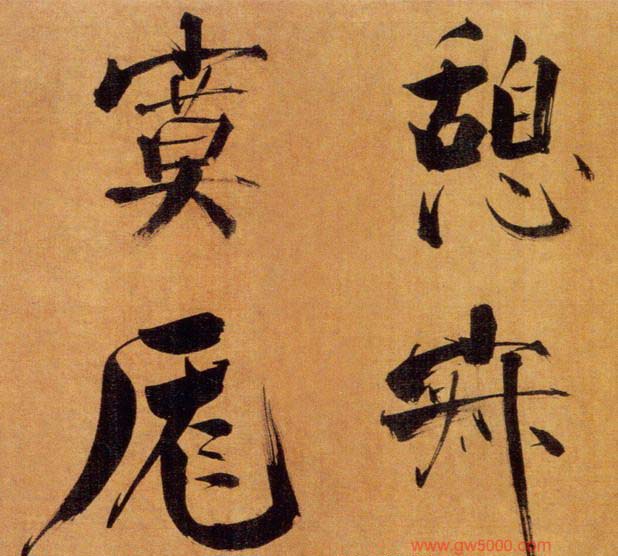 憩寂
寞厖
www.gw5000.com